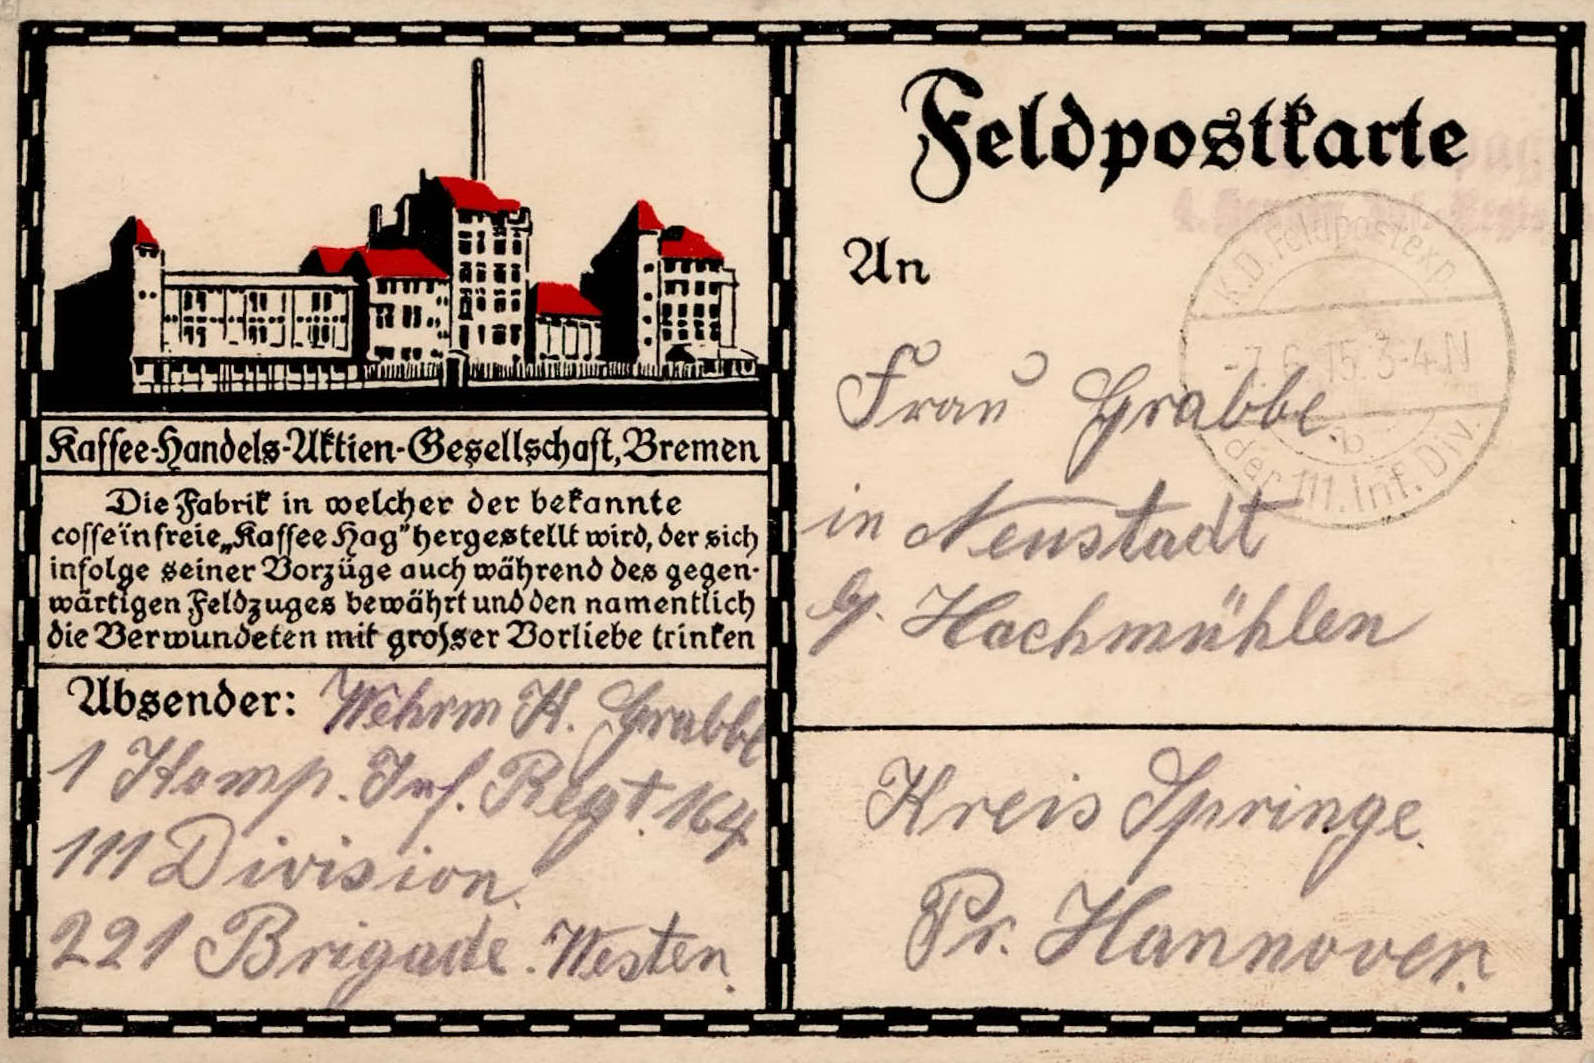 Kaffee-Handels-Aktien-Gesellschaft, Bremen
Die Fabrik in welcher der bekannte
coffeïnfreie „Kaffee Hag" hergestellt wird, der sich
infolge seiner Vorzüge auch während des gegen-
wärtigen Feldzuges bewährt und den namentlich
die Verwundeten mit grosser Vorliebe trinken
Absender: Wehrm H. Grabbe
1 Komp. Inf. Regt. 164
111 Division.
221 Brigade. Westen.
Feldpostkarte
K.D. Feldpostexp.
7. 6. 15. 3-4 N
b
der 111. Inf. Div.
An
Frau Grabbe.
in Neustadt
b/. Hachmühlen
Kreis Springe.
Pr. Hannover.